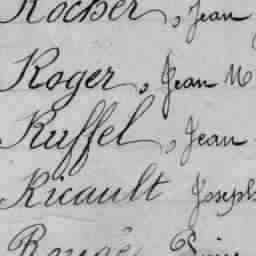 Rocher, Jean
Roger, Jean M
Ruffel, Jean
Ricault Joseph
Rougé